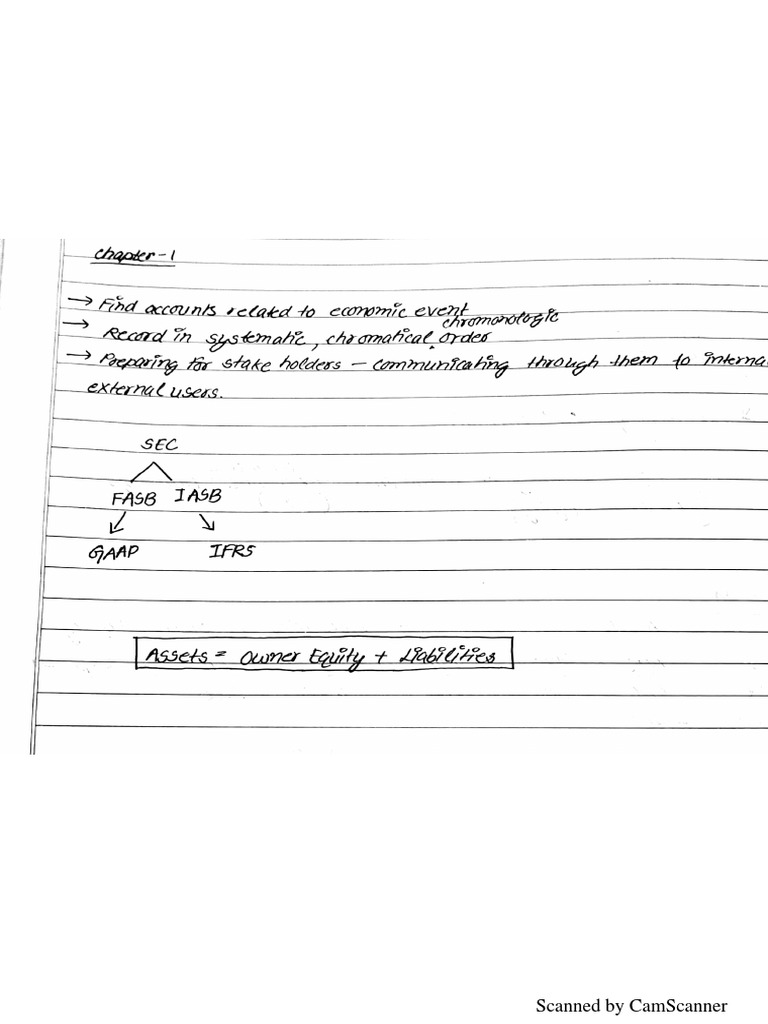 chapter-1
→ Find accounts related to economic event
chromonologic
→ Record in systematic, chromatical order
→ Preparing for stake holders - communicating through them to interna
external users.
SEC
FASB IASB
GAAP IFRS
Assets = Owner Equity + Liabilities
Scanned by CamScanner